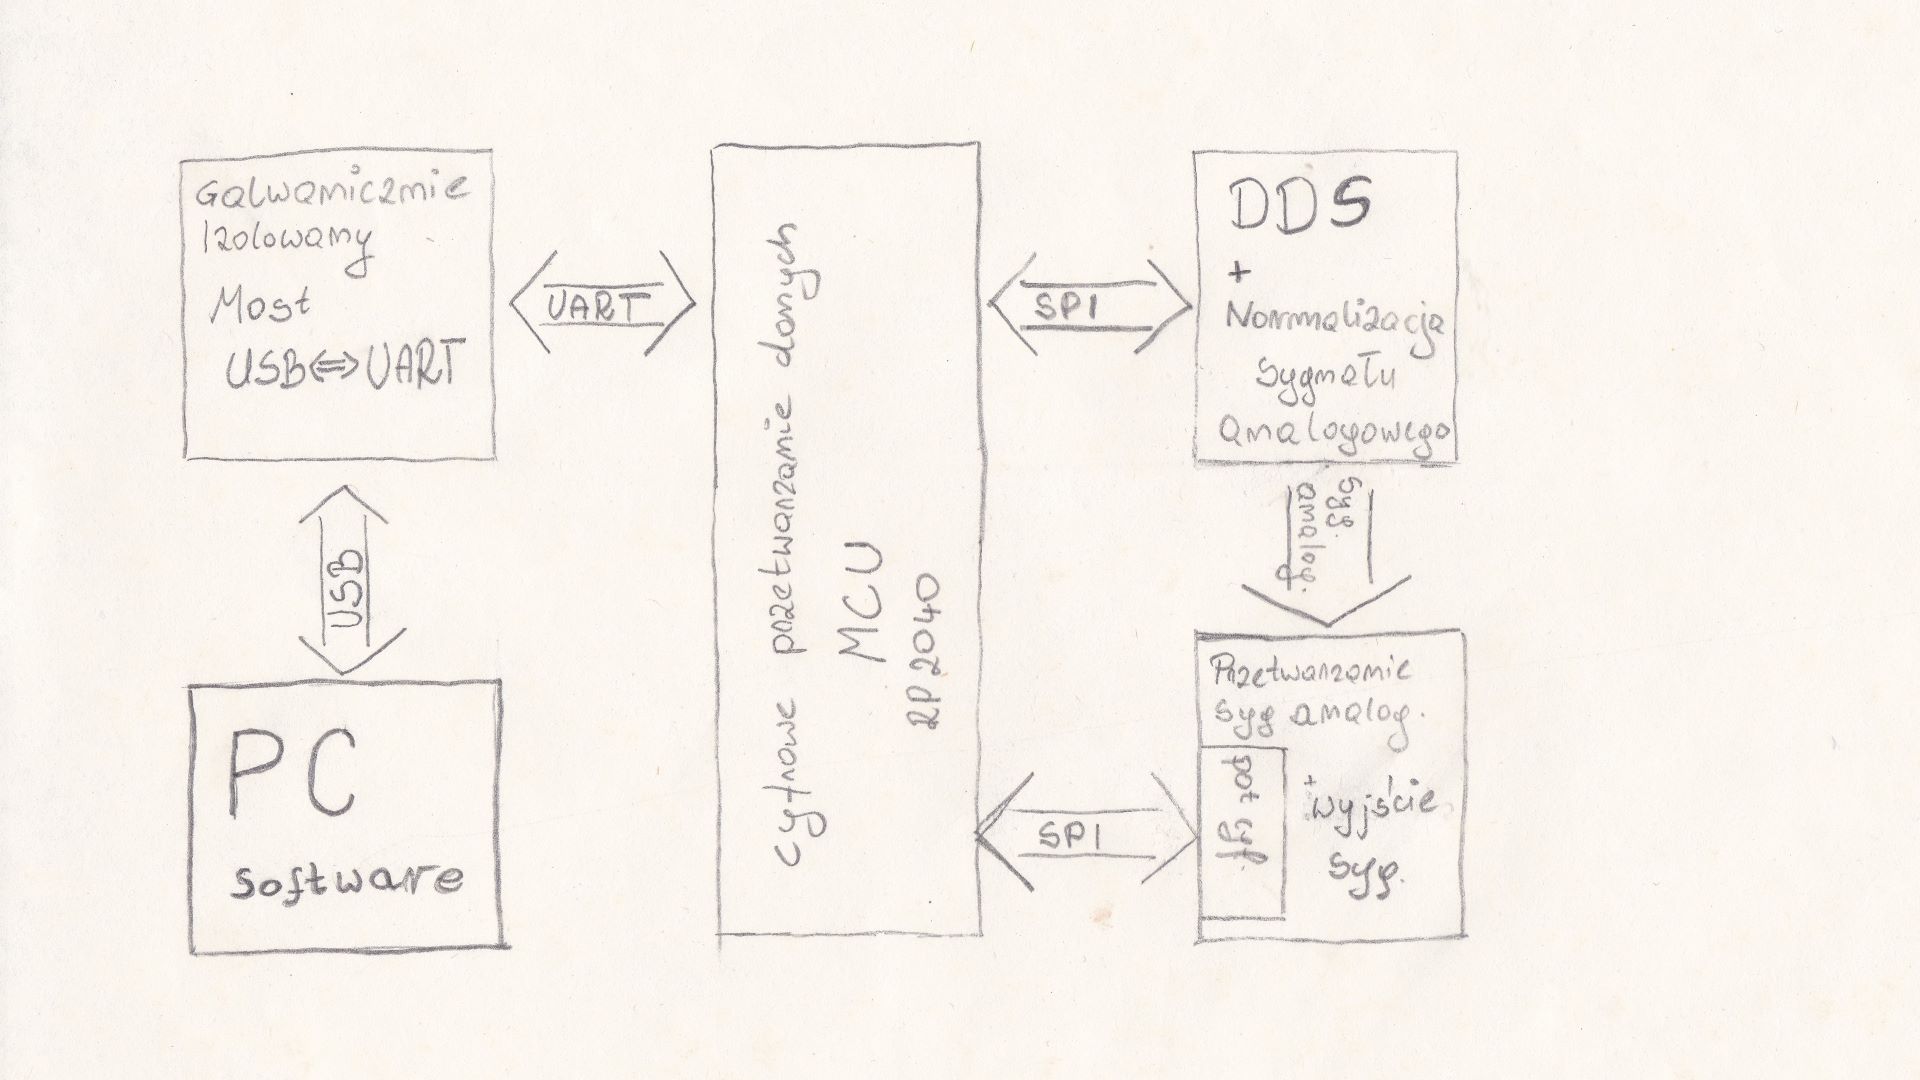 Galwanicznie
Izolowany
Most
USB⇔UART
USB
PC
software
UART
Cyfrowe przetwarzanie danych
MCU
RP2040
SPI
DDS
+
Normalizacja
sygnału
analogowego
syg.
analog.
SPI
Przetwarzanie
syg analog.
pot cyf.
+
wyjście
syg.